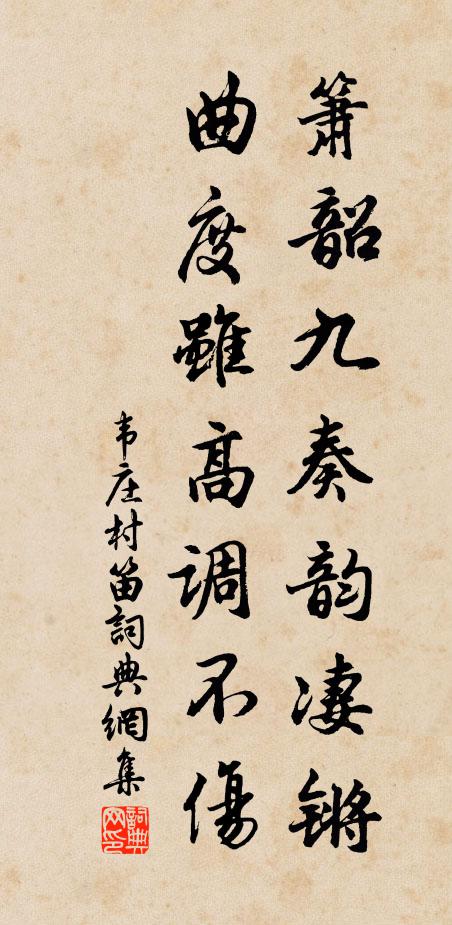 箫韶九奏韵凄锵
曲度雖高调不傷
韦庄村笛詞典網集
詞典
网印